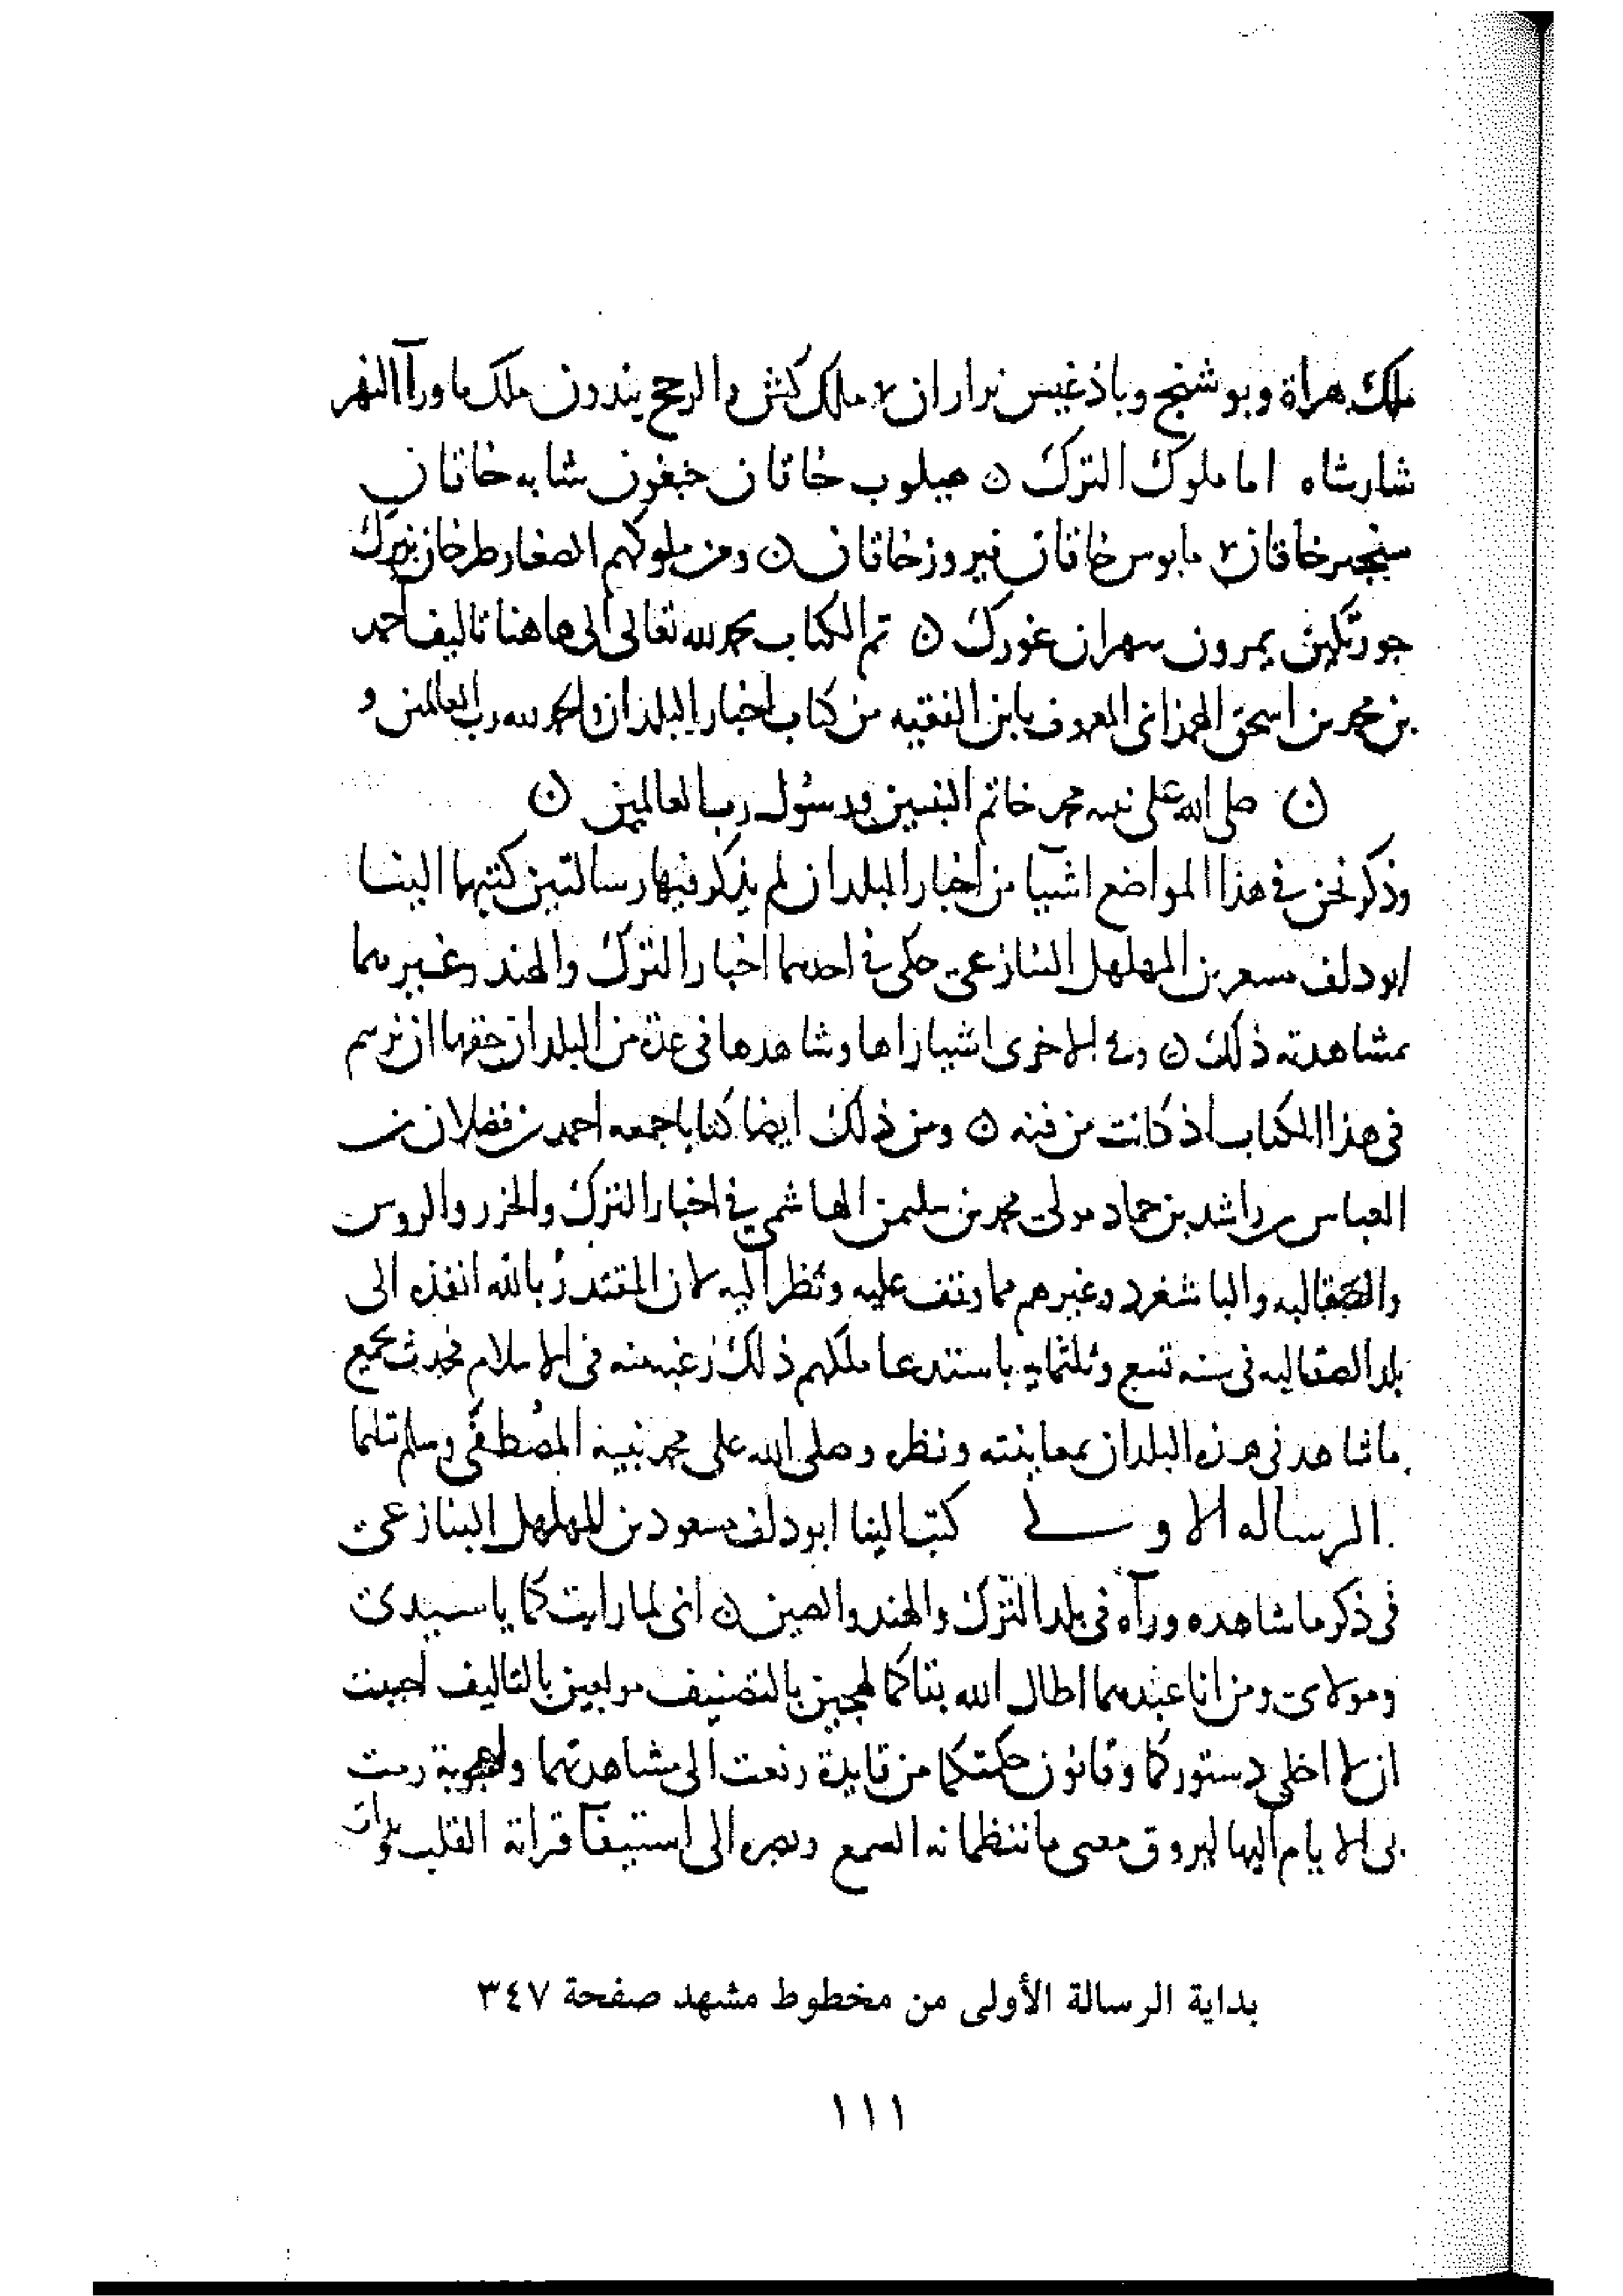 ملك هراة وبوشنج وباذغيس براران ملك كش والرجح يندون ملك ما ورآ النهر
شارشاه اما ملوك الترك ن هيلوب خاقان خبغون شابه خاقان
سنجر خاقان مابوس خاقان فيروز خاقان ن ومن ملوكهم الصغار طرخان نيزك
جورتكين يمرون سهران غورك ن تم الكتاب بحمد لله تعالى الى هاهنا تاليف احمد
بن محمد بن اسحق الهمذانى المعروف بابن الفقيه من كتاب اخبار البلدان والحمد لله رب العالمين و
ن صلى الله على نبيه محمد خاتم النبيين ورسول رب العالمين ن
وذكر نحن في هذا المواضع اشيا من اخبار البلدان لم يذكر فيها رسالتين كتبهما الينا
ابو دلف مسعر بن المهلهل الينازعى حكى في احدهما اخبار الترك والهند وغيرهما
بمشاهدته ذلك ن وفي الاخرى اشيا راها وشاهدها فى عدة من البلدان حقها ان ترسم
فى هذا الكتاب اذ كانت من فنه ن ومن ذلك ايضا كتابا جمعه احمد بن فضلان بن
العباس بن راشد بن حماد مولى محمد بن سليمن الهاشمي في اخبار الترك والخزر والروس
والصقالبه والباشغرد وغيرهم مما وقف عليه ونظر اليه لان المقتدر بالله انفذه الى
بلد الصقالبه فى سنه تسع وثلثمايه باستدعا ملكهم ذلك رغبه منه فى الاسلام فحدث بجميع
ما شاهد فى هذه البلدان بمعاينته ونظره وصلى الله على محمد نبيه المصطفى وسلم تسليما
الرساله الاولى كتب الينا ابو دلف مسعود بن المهلهل الينازعى
فى ذكر ما شاهده ورآه فى بلد الترك والهند والصين ن انى لما رايتكما يا سيدى
ومولاى ومن انا عبدهما اطال الله بقاكما لهجين بالتصنيف مولعين بالتاليف احببت
ان لا اخلى دستوركما وقانون حكمتكما من فايدة وقعت الى مشاهدتها واعجوبة رمت
بى الايام اليها ليروق معنى ما تنظمانه السمع ويصبو الى استيفآ قراته القلب
بداية الرسالة الأولى من مخطوط مشهد صفحة ٣٤٧
١١١